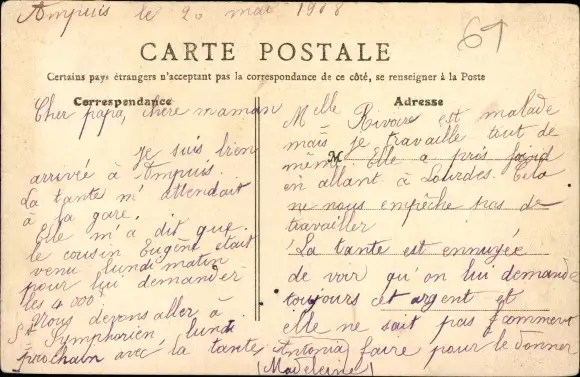 Ampuis le 20 mai 1908
61
CARTE POSTALE
Certains pays étrangers n'acceptant pas la correspondance de ce côté, se renseigner à la Poste
Correspondance
Cher papa, chère maman
Je suis bien
arrivée à Ampuis.
La tante m'attendait
à la gare.
Elle m'a dit que
le cousin Eugène était
venu lundi matin
pour lui demander
les 4 000.
Nous devons aller à
St Symphorien, lundi
prochain avec la tante Antonia
(Madeleine)
Adresse
Melle Rivoire est malade
mais je travaille tout de
M
même. Elle a pris froid
en allant à Lourdes. Cela
ne nous empêche pas de
travailler
La tante est ennuyée
de voir qu'on lui demande
toujours cet argent et
elle ne sait pas comment
faire pour le donner